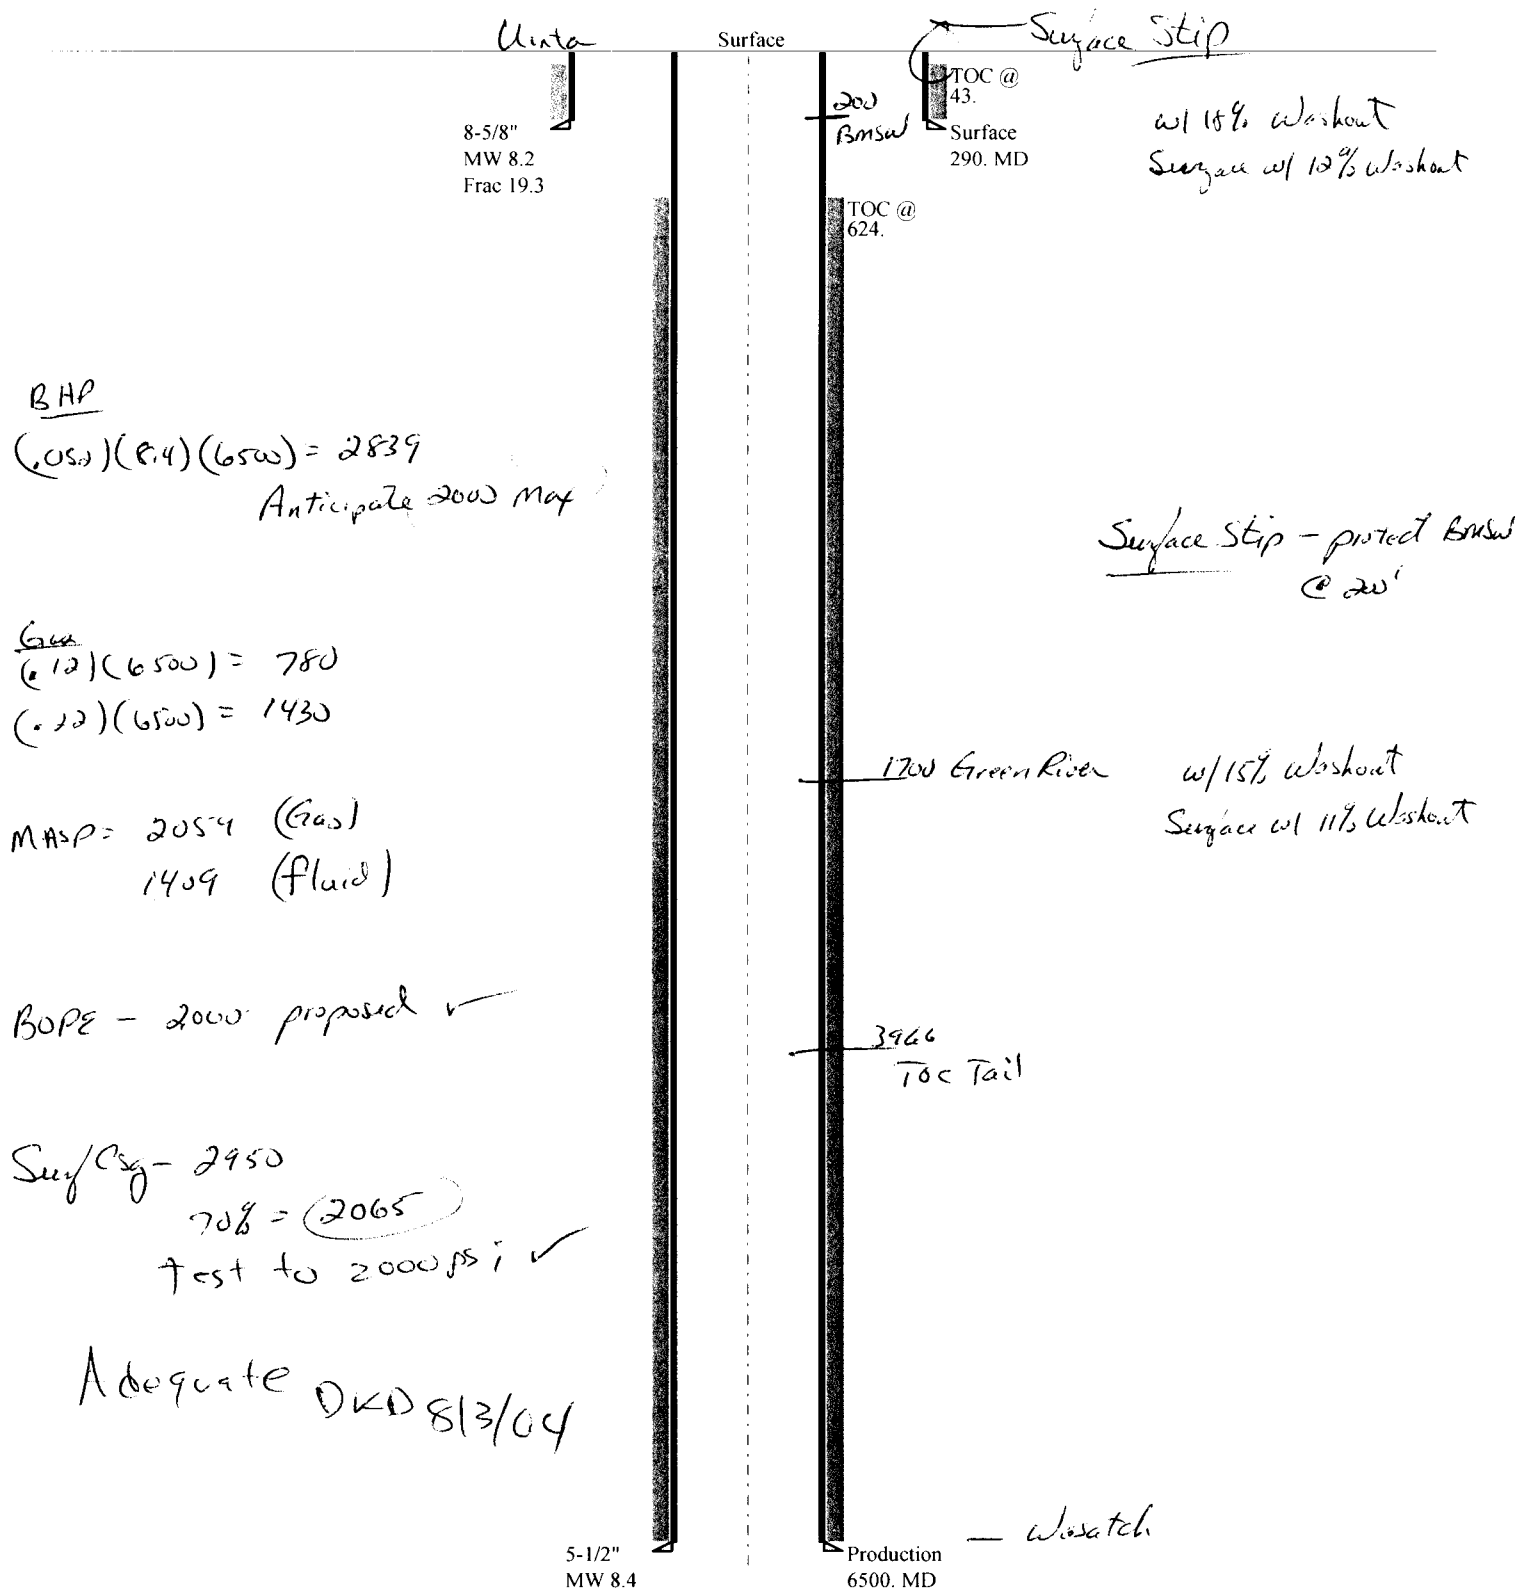 Uinta
Surface
Surface Stip
TOC @
43.
8-5/8"
MW 8.2
Frac 19.3
200
BMSW
Surface
290. MD
w/ 18% Washout
Surface w/ 12% Washout
TOC @
624.
BHP
(.052)(8.4)(6500) = 2839
Anticipate 2000 Max
Surface Stip - protect BMSW
@ 200'
Gas
(.12)(6500) = 780
(.22)(6500) = 1430
1700 Green River
w/15% Washout
Surface w/ 11% Washout
MASP = 2059 (Gas)
1409 (fluid)
BOPE - 2000 proposed ✓
3966
TOC Tail
Surf Csg - 2950
70% = 2065
Test to 2000 psi ✓
Adequate DKD 8/3/04
— Wasatch
5-1/2"
MW 8.4
Production
6500. MD